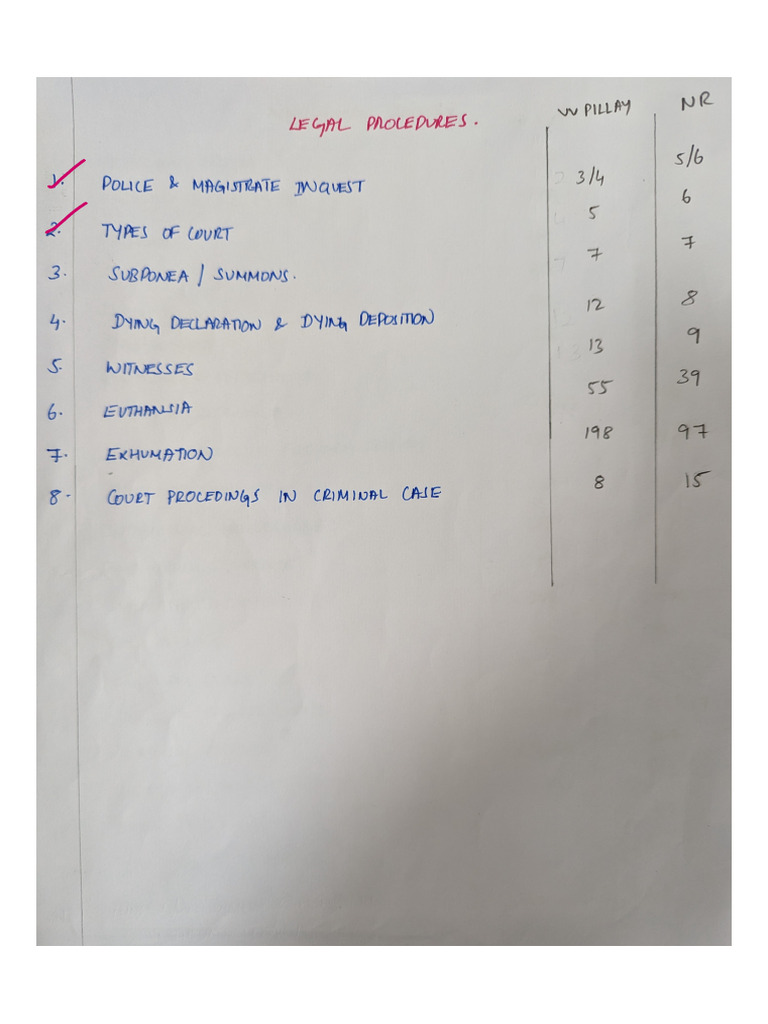 LEGAL PROCEDURES. VV PILLAY NR
1. POLICE & MAGISTRATE INQUEST 3/4 5/6
2. TYPES OF COURT 5 6
3. SUBPONEA / SUMMONS. 7 7
4. DYING DECLARATION & DYING DEPOSITION 12 8
5. WITNESSES 13 9
6. EUTHANSIA 55 39
7. EXHUMATION 198 97
8. COURT PROCEDINGS IN CRIMINAL CASE 8 15